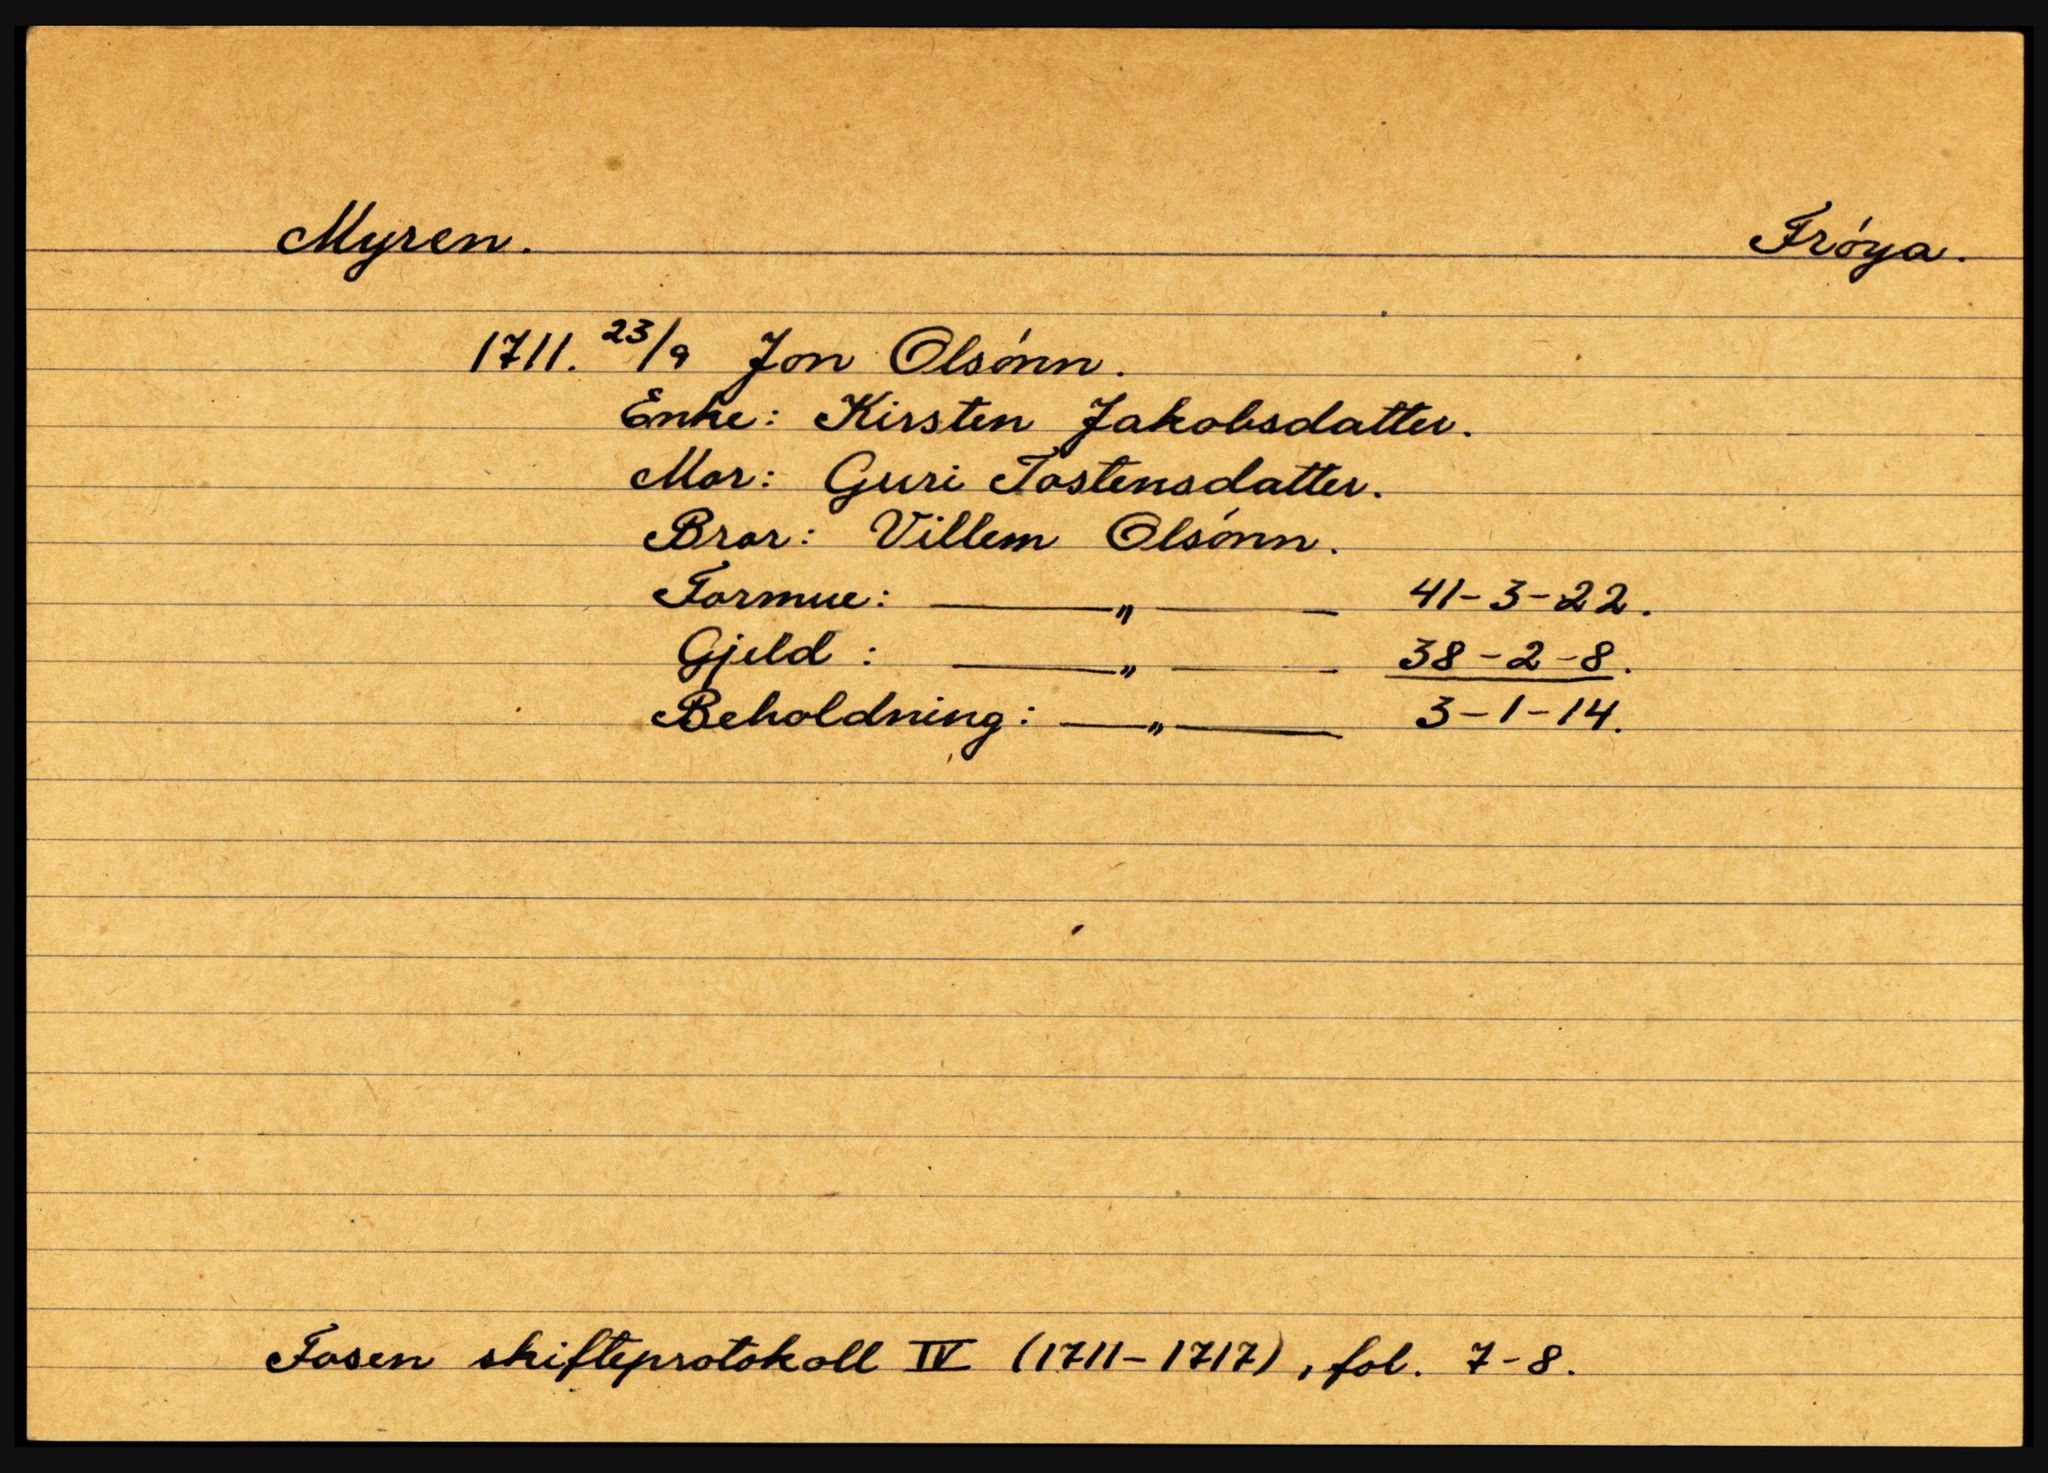 Myren. Fróya.
1711. 23/9 Jon Olsónn.
Enke: Kirsten Jakobsdatter.
Mor: Guri Tostensdatter.
Bror: Villem Olsónn.
Formue: —„— 41-3-22.
Gjeld: —„— 38-2-8.
Beholdning: —„— 3-1-14.
Fosen skifteprotokoll IV (1711-1717), fol. 7-8.